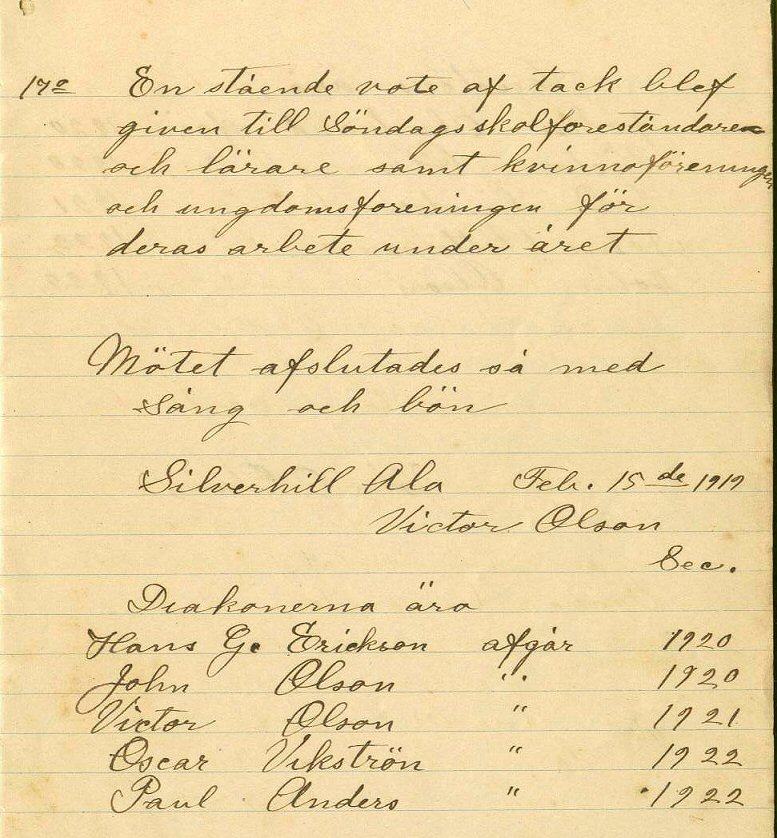 17º En stående vote af tack blef
given till Söndagsskolforeståndaren
och lärare samt kvinnoföreningen
och ungdomsforeningen för
deras arbete under året
Mötet afslutades så med
Sång och bön
Silverhill Ala Feb. 15 de 1919
Victor Olson
Sec.
Diakonerna äro
Hans G. Erickson afgår 1920
John Olson " 1920
Victor Olson " 1921
Oscar Vikströn " 1922
Paul Anders " 1922